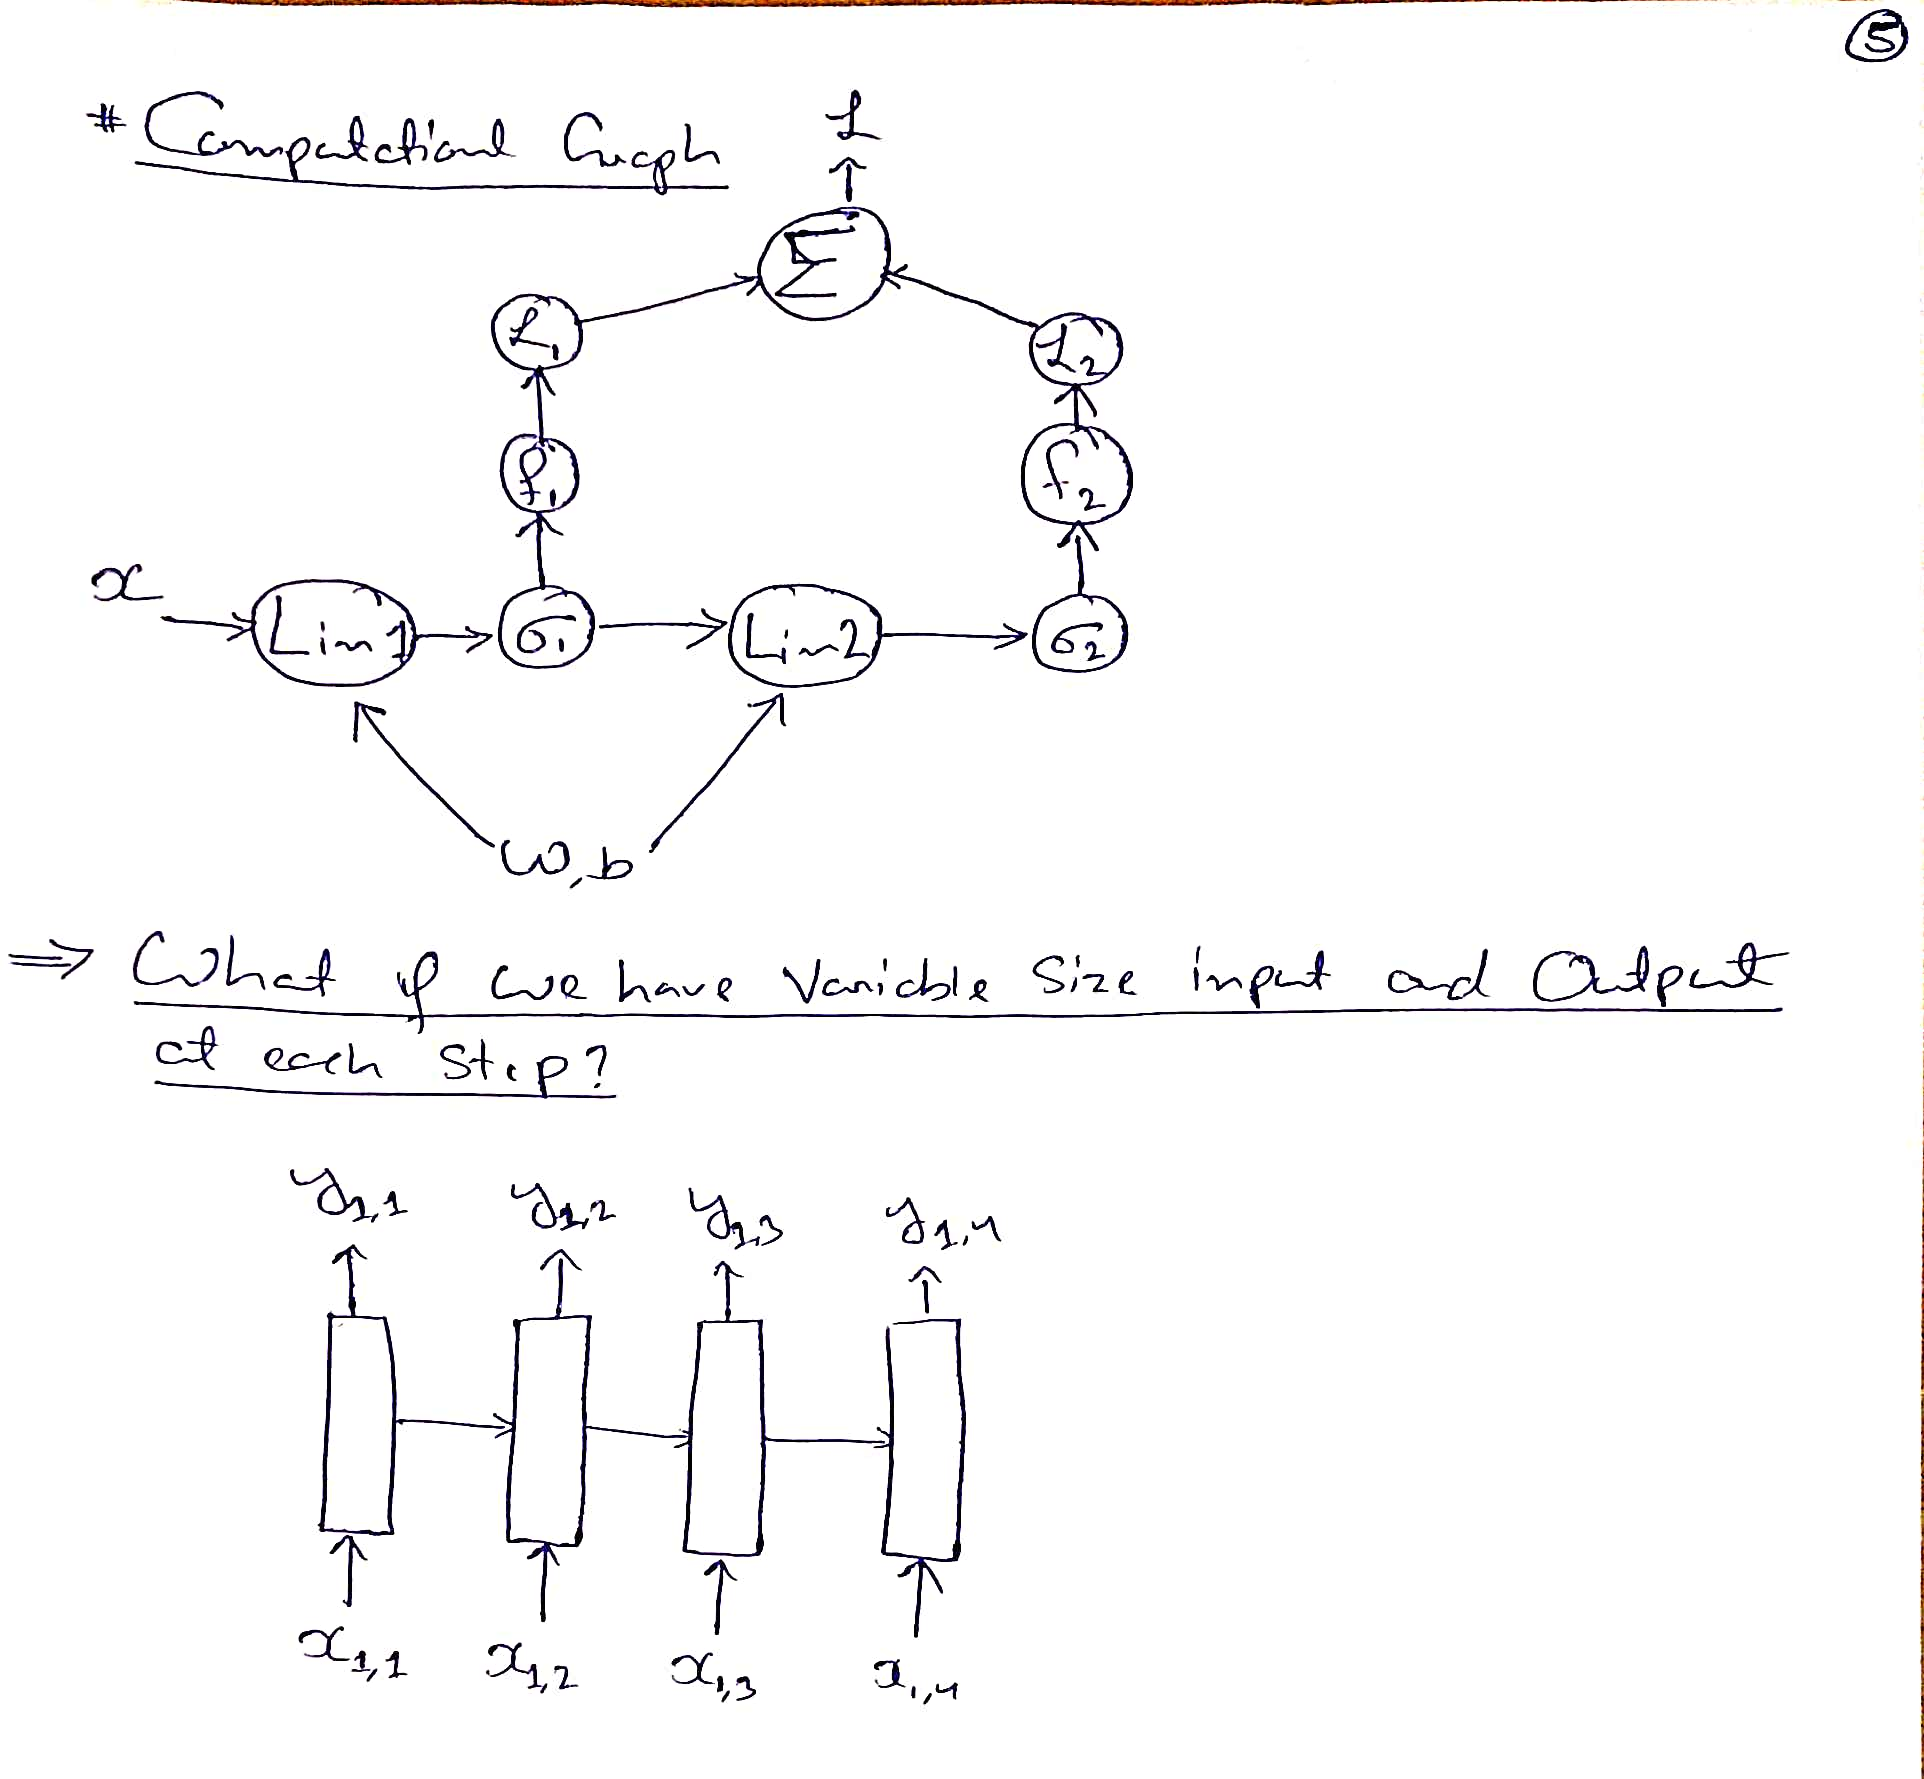 5
# Computational Graph
L
Σ
L₁ L₂
f₁ f₂
x
Lin1 σ₁ Lin2 σ₂
W,b
⇒ What if we have Variable Size input and Output
at each Step?
y₁,₁ y₁,₂ y₁,₃ y₁,₄
x₁,₁ x₁,₂ x₁,₃ x₁,₄